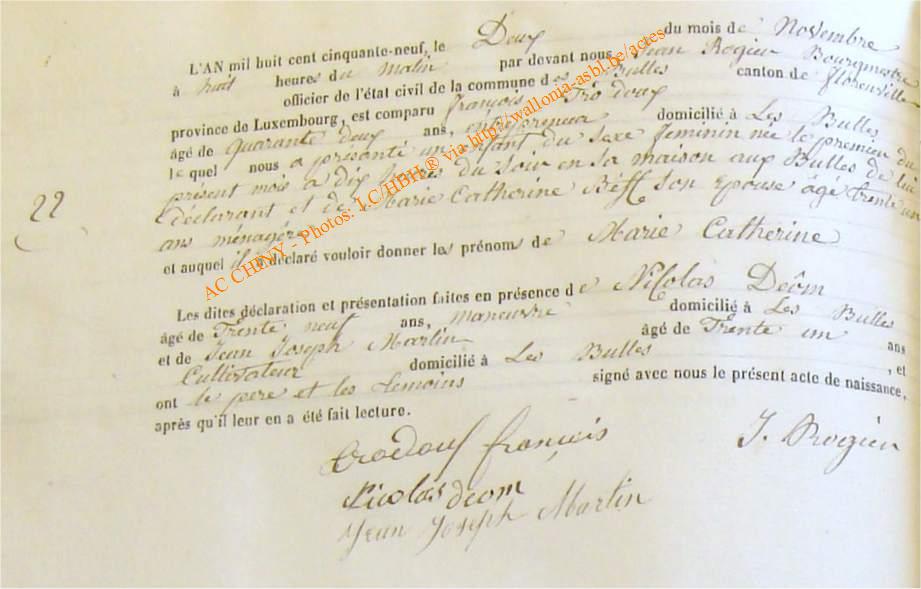 L'AN mil huit cent cinquante-neuf, le Deux du mois de Novembre
à huit heures du Matin par devant nous Jean Rogier Bourgmestre
officier de l'état civil de la commune des Bulles canton de florenville
province de Luxembourg, est comparu françois Trodoux
âgé de quarante deux ans, entrepreneur domicilié à Les Bulles
lequel nous a présenté un enfant du sexe feminin née le premier du
présent mois a dix heures du soir en sa maison aux Bulles de lui
déclarant et de Marie Catherine Biff son epouse âgé trente
ans ménagère
et auquel il a déclaré vouloir donner les prénoms de Marie Catherine
22
Les dites déclaration et présentation faites en présence de Nicolas Deôm
âgé de Trente neuf ans, maneuvre domicilié à Les Bulles
et de Jean Joseph Martin âgé de Trente un ans
Cultivateur domicilié à Les Bulles , et
ont le pere et les temoins signé avec nous le présent acte de naissance,
après qu'il leur en a été fait lecture.
trodoux françois J. Rogier
Nicolas deom
Jean Joseph Martin
AC CHINY - Photos: J.C HBH® via http://wallonia-asbl.be/actes